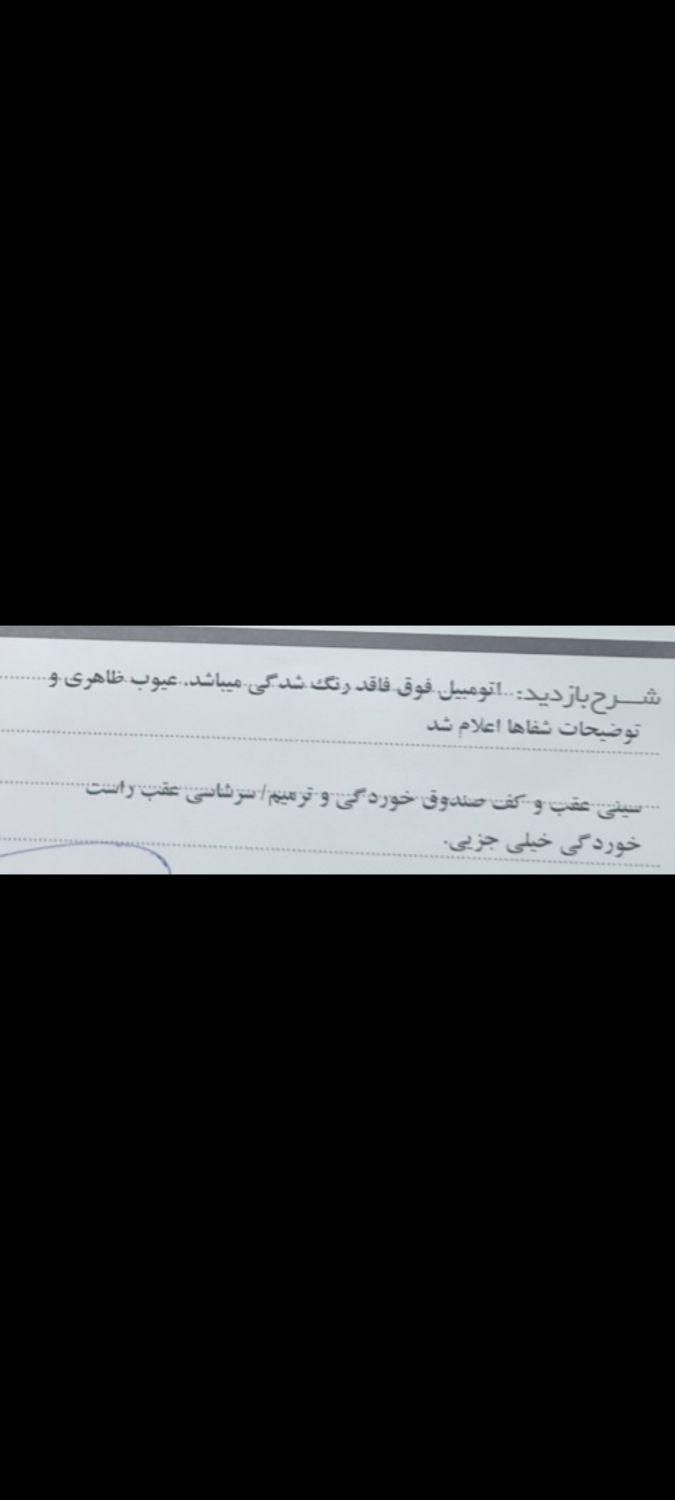 شـــرح بازدید: اتومبیل فوق فاقد رنگ شدگی میباشد. عیوب ظاهری و
توضیحات شفاها اعلام شد
سینی عقب و کف صندوق خوردگی و ترمیم/ سرشاسی عقب راست
خوردگی خیلی جزیی.